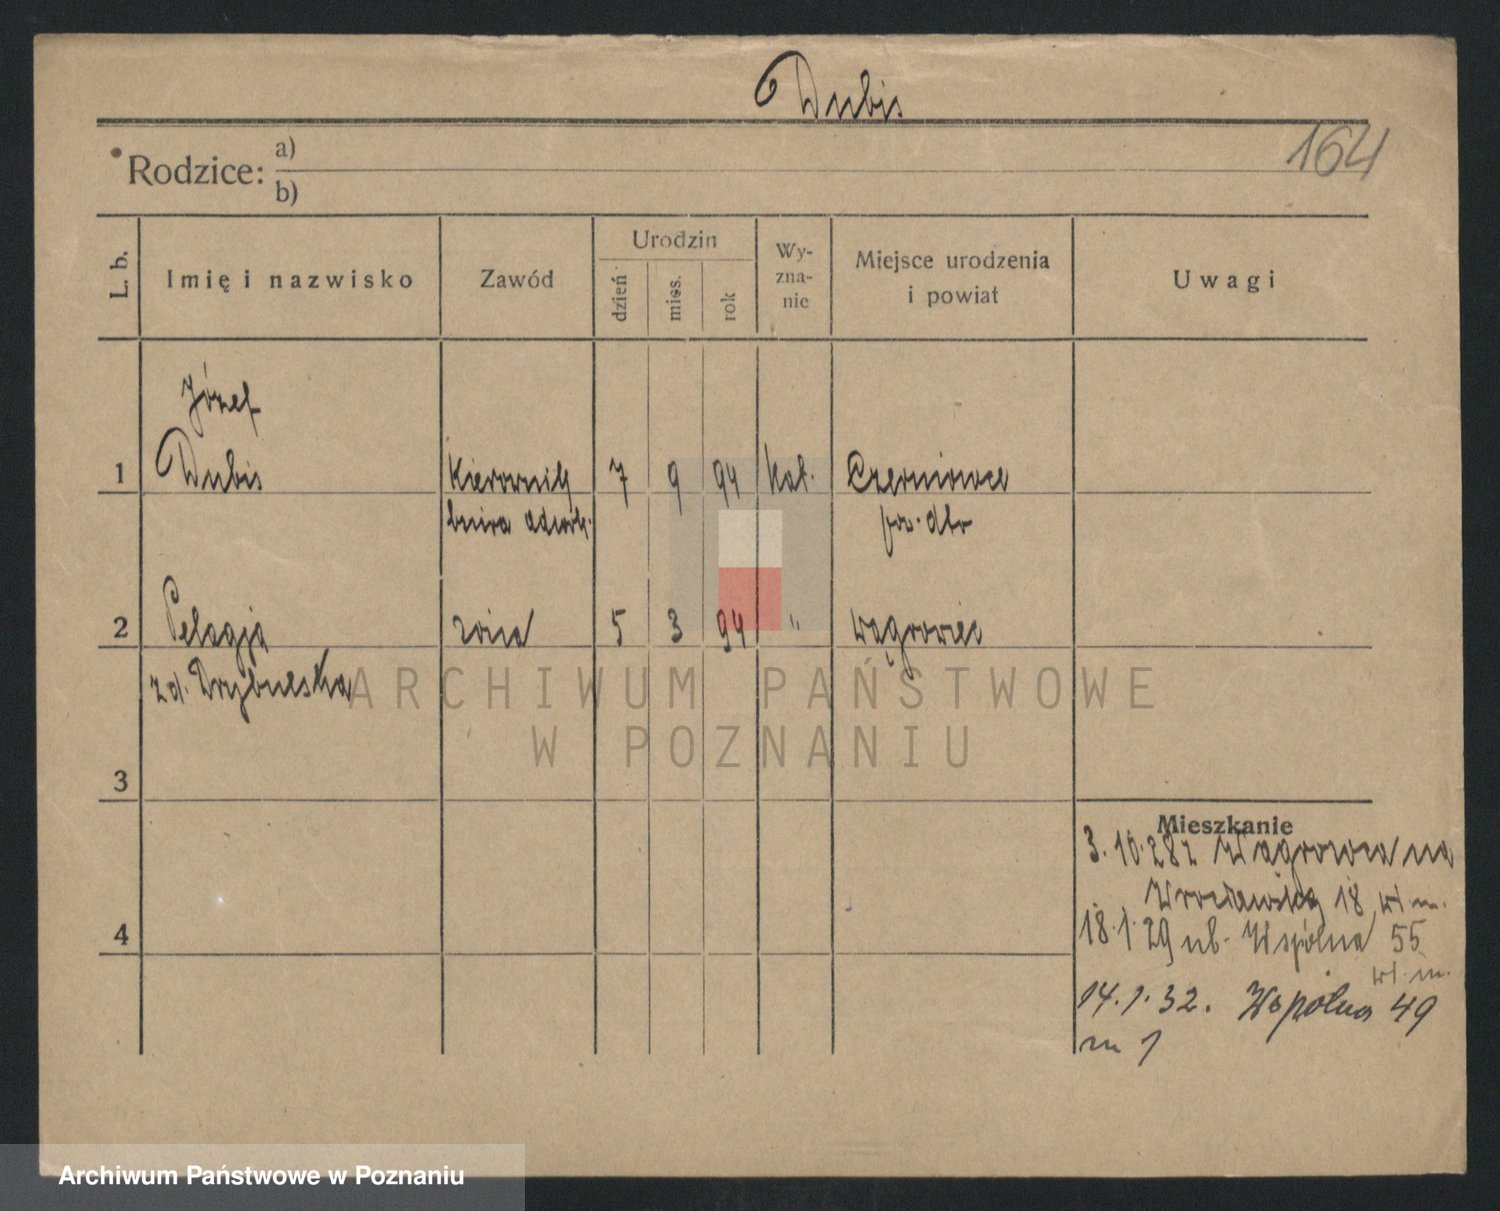 Dubis
164
Rodzice: a)
b)
L. b.
Imię i nazwisko
Zawód
Urodzin
dzień
mies.
rok
Wy-
zna-
nie
Miejsce urodzenia
i powiat
Uwagi
Józef
1 Dubis Kierownik 7 9 94 kat. Czerniowce
biura adwok.
2 Pelagja żona 5 3 94 " Wągrowiec
zd.
3
4
Mieszkanie
3.10.28 z Wągrowca na
18 wł. m.
18.1.29 ul. Wspólna 55
wł. m.
14.1.32. Wspólna 49
m 1
ARCHIWUM PAŃSTWOWE
W POZNANIU
Archiwum Państwowe w Poznaniu